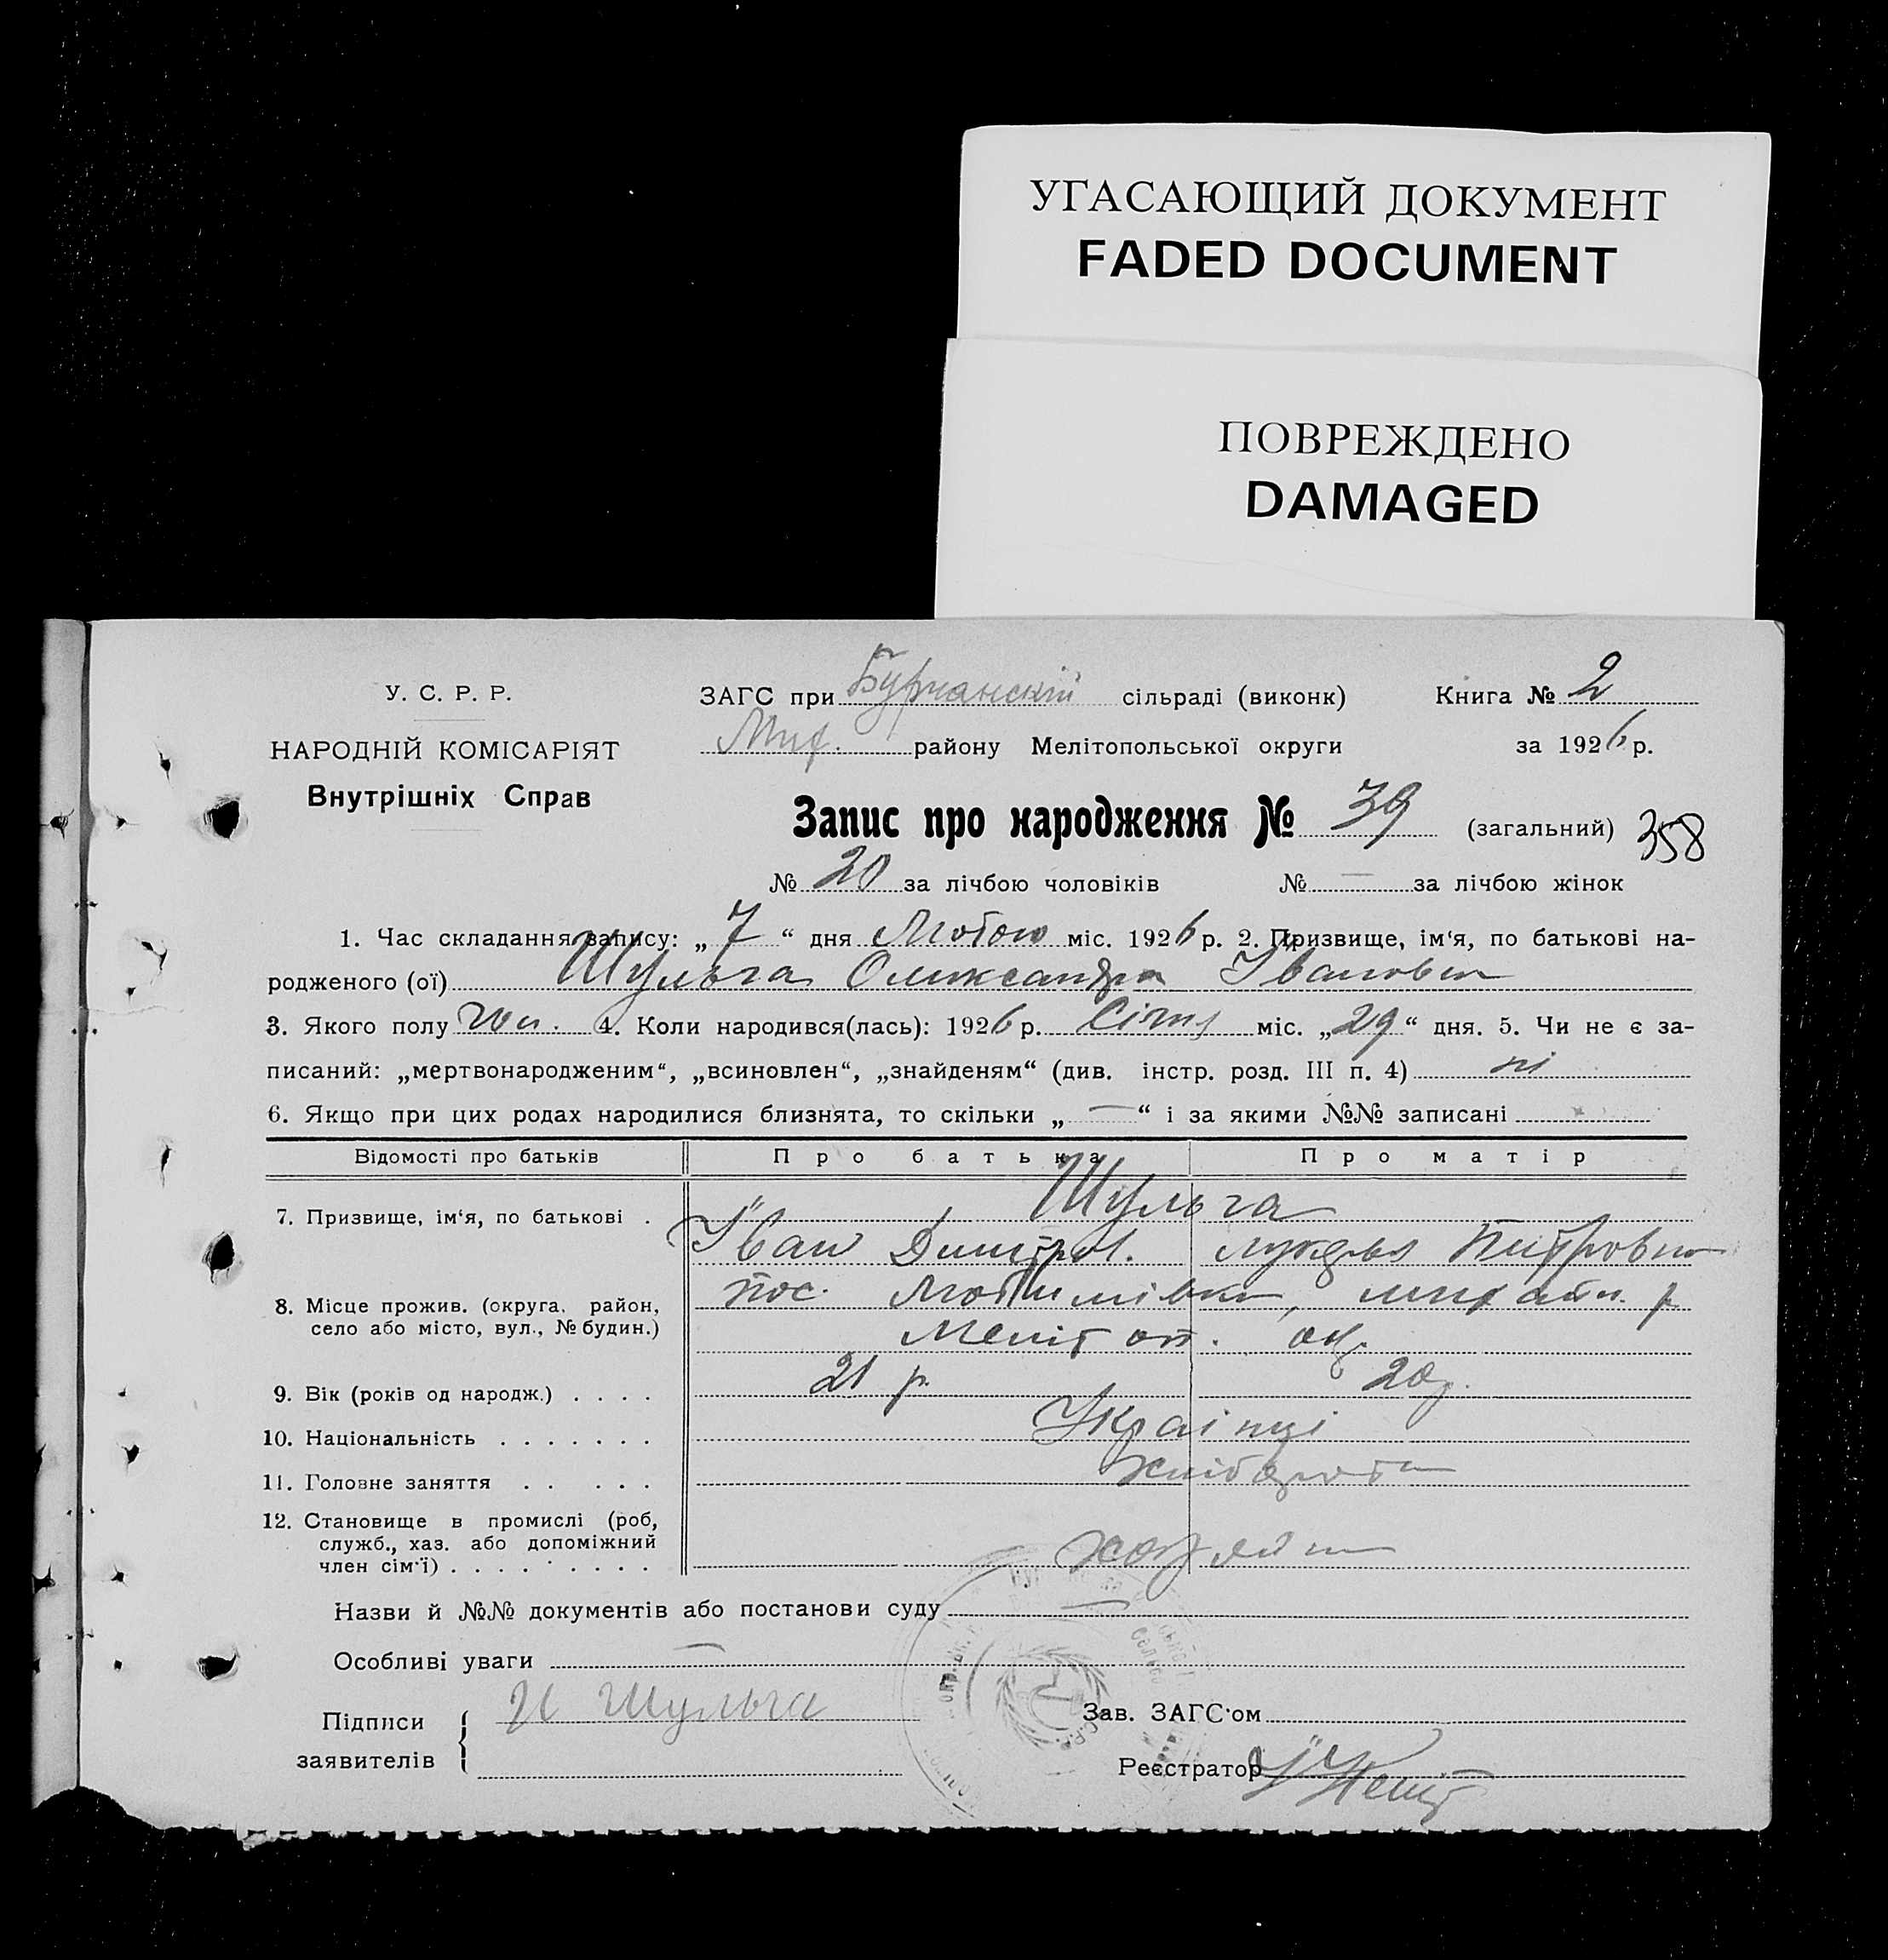 УГАСАЮЩИЙ ДОКУМЕНТ
FADED DOCUMENT
ПОВРЕЖДЕНО
DAMAGED
У. С. Р. Р.
НАРОДНІЙ КОМІСАРІЯТ
Внутрішніх Справ
ЗАГС при Бурчанскій сільраді (виконк) Книга № 2
Мих. району Мелітопольської округи за 1926 р.
Запис про народження № 39 (загальний) 358
№ 20 за лічбою чоловіків № — за лічбою жінок
1. Час складання запису: „ 7 “ дня Лютого міс. 1926 р. 2. Призвище, ім‘я, по батькові на-
родженого (ої) Шульга Олександра Івановча
3. Якого полу чол. 4. Коли народився(лась): 1926 р. Січня міс. „ 29 “ дня. 5. Чи не є за-
писаний: „мертвонародженим“, „всиновлен“, „знайденям“ (див. інстр. розд. III п. 4) ні
6. Якщо при цих родах народилися близнята, то скільки „ — “ і за якими №№ записані
Відомості про батьків Про батька Про матір
7. Призвище, ім‘я, по батькові . Шульга
Іван Дмитров. Петровна
8. Місце прожив. (округа, район, село або місто, вул., № будин.) пос. Любимівка, михайл. р
Меліт оп. окр.
9. Вік (років од народж.) . . . . 21 р. 20 р.
10. Національність . . . . . . . Українці
11. Головне заняття . . . . . хлібороби
12. Становище в промислі (роб, служб., хаз. або допоміжний член сім‘ї) . . . . . . . . . хозяїн
Назви й №№ документів або постанови суду —
Особливі уваги —
Підписи заявителів И Шульга
Зав. ЗАГС‘ом
Реєстратор